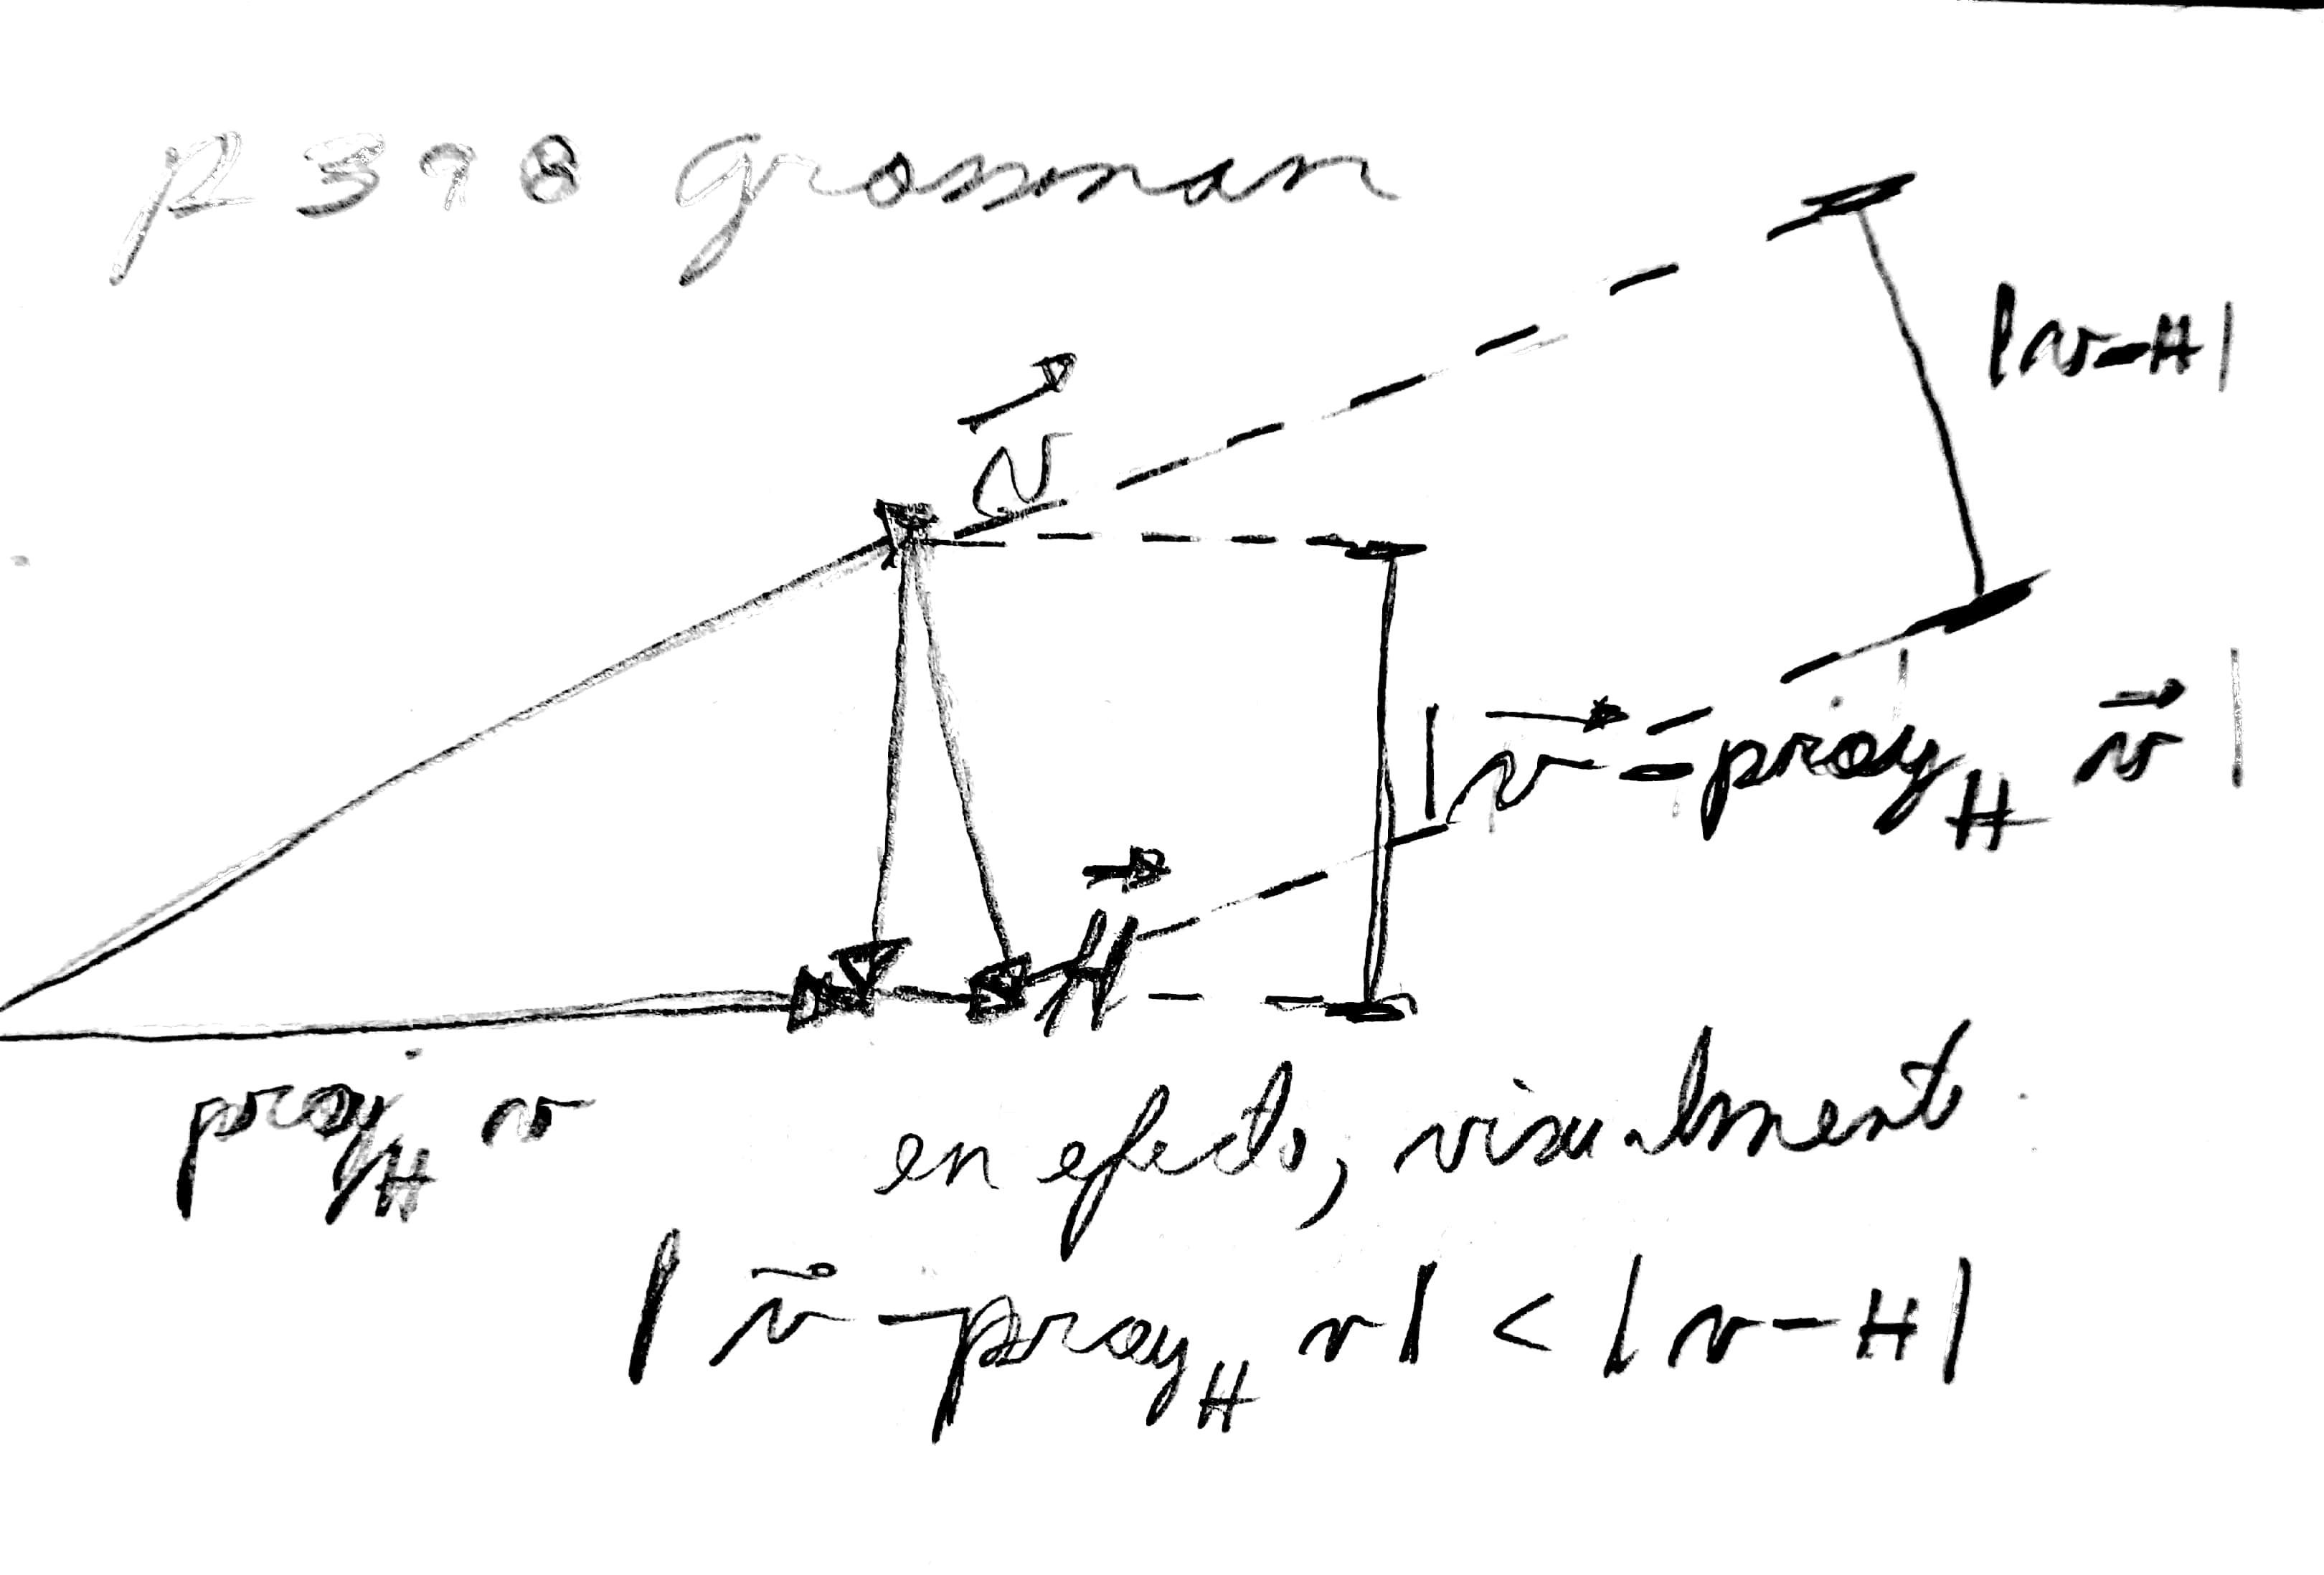 p 398 grossman
|v-H|
v
|v - proy_H v|
H
proy_H v
en efecto, visualmente
|v - proy_H v| < |v - H|